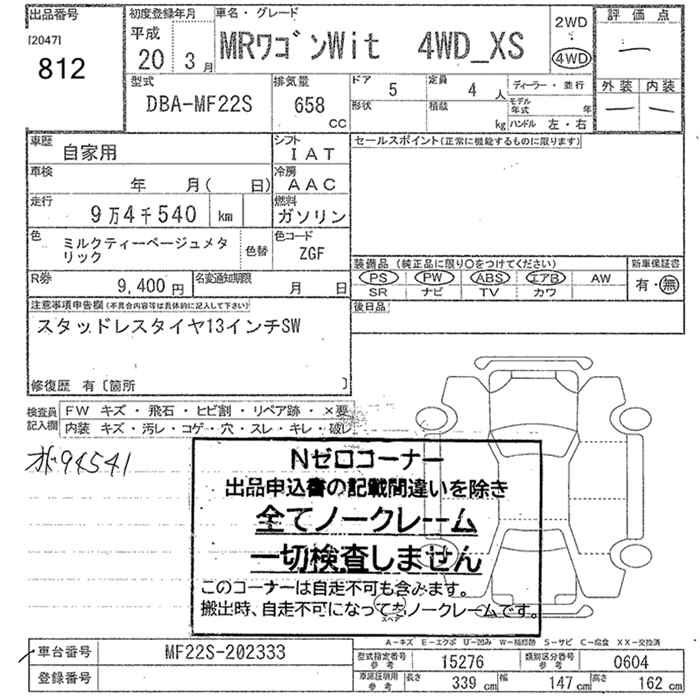 出品番号
[2047]
812
初度登録年月
平成
20 3月
車名・グレード
MRワゴンWit 4WD_XS
2WD
4WD
評価点
ー
外装 内装
ー ー
型式
DBA-MF22S
排気量
658
CC
ドア 5
定員 4 人
形状
積載 kg
ディーラー・並行
モデル年式 年
ハンドル 左・右
車歴
自家用
シフト
IAT
セールスポイント(正常に機能するものに限ります)
車検
年 月( 日)
冷房
AAC
走行
9万4千540 km
燃料
ガソリン
色
ミルクティーベージュメタリック
色替
色コード
ZGF
装備品 (純正品に限り○をつけてください)
PS PW ABS エアB AW
SR ナビ TV カワ
新車保証書
有・無
R券
9,400円
名変通知期限
月 日
後日品
注意事項申告欄(不具合内容等は具体的に記入して下さい)
スタッドレスタイヤ13インチSW
修復歴 有〔箇所 〕
検査員記入欄
FW キズ・飛石・ヒビ割・リペア跡・×要
内装 キズ・汚レ・コゲ・穴・スレ・キレ・破レ
94541
Nゼロコーナー
出品申込書の記載間違いを除き
全てノークレーム
一切検査しません
このコーナーは自走不可も含みます。
搬出時、自走不可になってもノークレームです。
スペア
A-キズ E-エクボ U-凹み W-補修跡 S-サビ C-腐食 XX-交換済
車台番号
MF22S-202333
型式指定番号 参考
15276
類別区分番号 参考
0604
登録番号
車庫証明用 参考
長さ 339 cm
幅 147 cm
高さ 162 cm